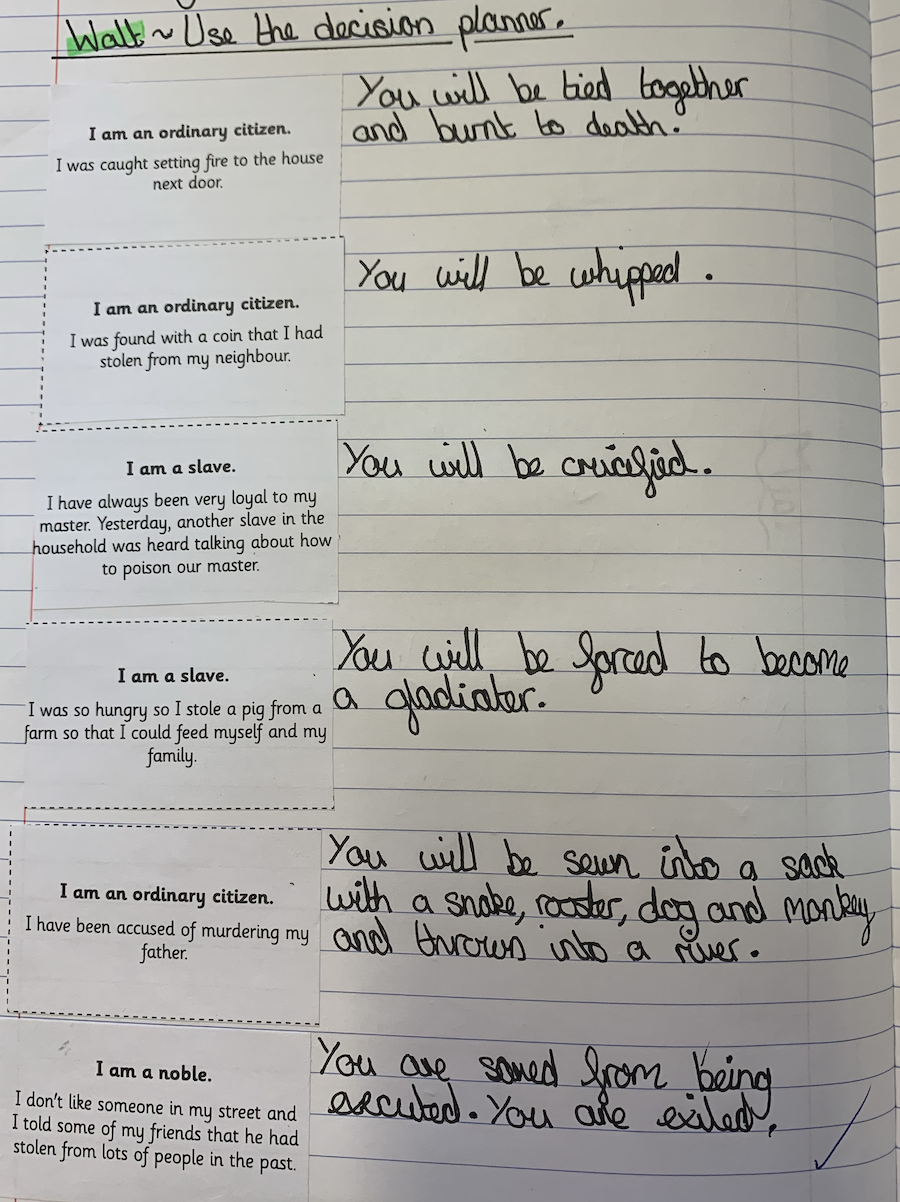 Walt ~ Use the decision planner.
I am an ordinary citizen.
I was caught setting fire to the house
next door.
You will be tied together
and burnt to death.
I am an ordinary citizen.
I was found with a coin that I had
stolen from my neighbour.
You will be whipped.
I am a slave.
I have always been very loyal to my
master. Yesterday, another slave in the
household was heard talking about how
to poison our master.
You will be crucified.
I am a slave.
I was so hungry so I stole a pig from a
farm so that I could feed myself and my
family.
You will be forced to become
a gladiator.
I am an ordinary citizen.
I have been accused of murdering my
father.
You will be sewn into a sack
with a snake, rooster, dog and monkey
and thrown into a river.
I am a noble.
I don't like someone in my street and
I told some of my friends that he had
stolen from lots of people in the past.
You are saved from being
executed. You are exiled.